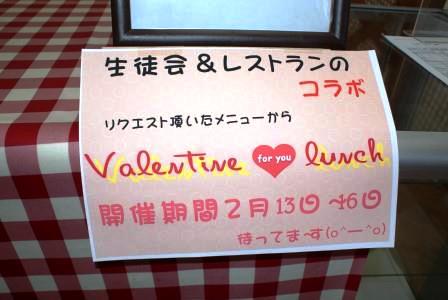 生徒会&レストランの
コラボ
リクエスト頂いたメニューから
Valentine for you lunch
開催期間2月13日~16日
待ってま~す(o^―^o)